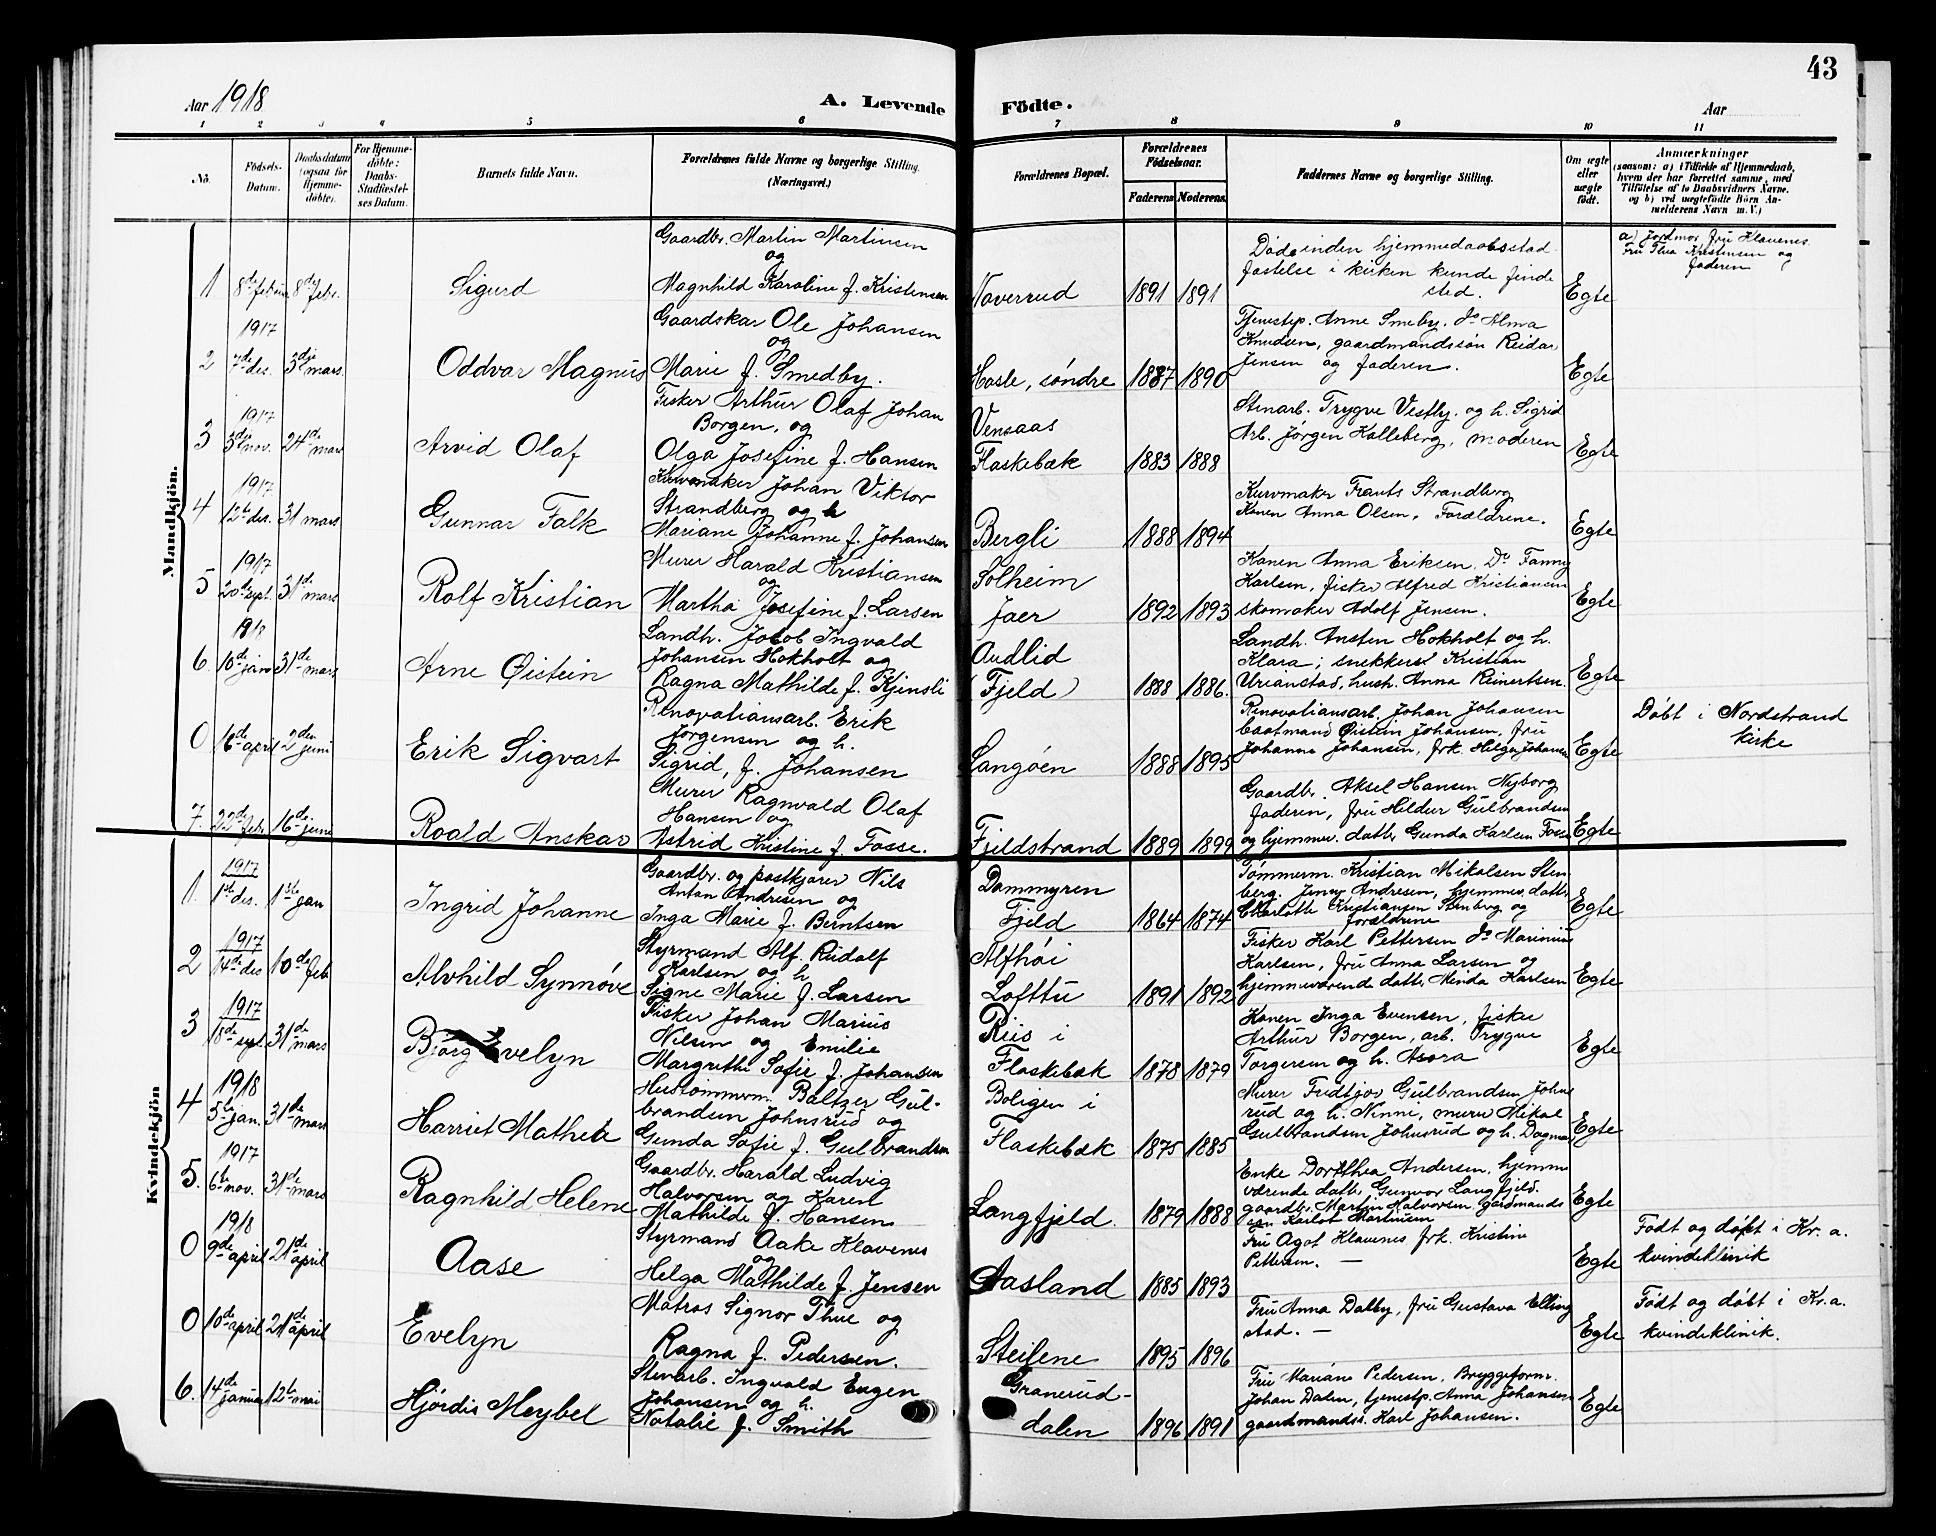 43
Aar 1918
A. Levende Födte.
Aar
1 2 3 4 5 6 7 8 9 10 11
Nô.
Födsels-Datum.
Daabsdatum (ogsaa for Hjemme-döbte).
For Hjemme-döbte: Daabs-Stadfæstel-ses Datum.
Barnets fulde Navn.
Forældrenes fulde Navne og borgerlige Stilling. (Næringsvei.)
Forældrenes Bopæl.
Forældrenes Födselsaar.
Faderens. Moderens.
Faddernes Navne og borgerlige Stilling.
Om ægte eller uægte födt.
Anmærkninger
(saasom: a) i Tilfælde af Hjemmedaab, hvem der har forrettet samme, med Tilföielse af to Daabsvidners Navne, og b) ved uægtefödte Börn An-melderens Navn m. V.)
Mandkjön.
1 8de februar 8de febr. Sigurd
Gaardbr. Martin Martinsen
og
Magnhild Karoline f. Kristensen
Naverrud 1891 1891
Døde inden hjemmedaabsstad-
fæstelse i kirken kunde finde
sted.
Egte
a) Jordmor fru Klavenes.
Fru Thea Kristensen og
faderen
1917
2 7de des. 3die mars. Oddvar Magnus
Gaardskar Ole Johansen
og
Marie f. Smedby.
Hasle, søndre 1887 1890
Tjenestep. Anne Smeby. do Alma
Knudsen, gaardmandssøn Reidar
Jensen og faderen.
Egte
1917
3 3die nov. 24de mars Arvid Olaf
Fisker Arthur Olaf Johan
Borgen, og
Olga Josefine f. Hansen
Vensaas
Flaskebæk 1883 1888
Stenarb. Trygve Vestby. og h. Sigrid
Arb. Jørgen Kalleberg, moderen
Egte
1917
4 12te des. 31 mars Gunnar Falk
Kurvmaker Johan Viktor
Strandberg og h
Mariane Johanne f. Johansen
Bergli 1888 1894
Kurvmaker Frants Strandberg
Konen Anna Olsen. Forældrene.
Egte
1917
5 20de sept. 31te mars Rolf Kristian
Murer Harald Kristiansen
og
Martha Josefine f. Larsen
Solheim
Jaer 1892 1893
Konen Anna Eriksen. Do Fanny
Karlsen, fisker Alfred Kristiansen
skomaker Adolf Jensen.
Egte
1918
6. 10de jan 31te mars Arne Øistein
Landh. Jacob Ingvald
Johansen Hokholt og
Ragna Mathilde f. Kjensli
Audlid
(Fjeld) 1888 1886.
Landh. Ansten Hokholt og h.
Klara; snekkers Kristian
Urianstad, hush. Anna Reinertsen.
Egte
0 16de april 2den juni Erik Sigvart
Renovationsarb. Erik
Jørgensen og h.
Sigrid, f. Johansen
Langøen 1888 1895
Renovationsarb. Johan Johansen
baatmand Øistein Johansen, fru
Johanne Johansen, frk. Helga Johansen
Egte
Døbt i Nordstrand
kirke
7. 22de febr 16de juni Roald Anskar
Murer Ragnvald Olaf
Hansen og
Astrid Kristine f. Fosse.
Fjeldstrand 1889 1899
Gaardbr. Aksel Hansen Nyborg
faderen, fru Hildur Gulbrandsen
og hjemmev. datter Gunda Karlsen Fosse
Egte
Kvindekjön
1917
1. 1ste des. 1ste jan Ingrid Johanne
Gaardbr. og postkjører Nils
Anton Andresen og
Inga Marie f. Berntsen
Dammyren
Fjeld 1864 1874
Tømmerm. Kristian Mikalsen Sten
berg. Jenny Andresen, hjemmev. datter
Charlotte Kristiansen Stenberg og
forældrene
Egte
1917
2 14de des 10de feb Alvhild Synnøve
Styrmand Alf. Rudolf
Karlsen og h.
Signe Marie f. Larsen
Alfhøi
Lofttu 1891 1892
Fisker Karl Pettersen do Marinius
Karlsen, fru Anna Larsen og
hjemmeværend datter Minda Karlsen
Egte
1917
3 18de sept. 31te mars Bjørg Evelyn
Fisker Johan Marius
Nilsen og Emilie
Margrethe Sofie f. Johansen
Riis i
Flaskebæk 1878 1879
Konen Inga Evensen, fisker
Arthur Borgen, arb. Trygve
Torgersen og h. Asora
Egte
1918
4 5te jan. 31te mars Harriet Mathea
Hustømmerm. Baltzer Gul-
brandsen Johnsrud og
Gunda Sofie f. Gulbrandsen
Boligen i
Flaskebæk 1875 1885
Murer Fridtjov Gulbrandsen Johns
rud og h. Ninni, murer Mikal
Gulbrandsen Johnsrud og h. Dagmar
Egte
1917
5. 6te nov. 31te mars Ragnhild Helene
Gaardbr. Harald Ludvig
Halvorsen og Karen
Mathilde f. Hansen
Langfjeld. 1879 1888
Enke Dorthea Andersen, hjemme
værende datter Gunvor Langfjeld.
gaardbr. Martin Halvorsen. gardmands
søn Karlot Martinsen
Egte
1918
0 9de april 21de april Aase
Styrmand Aake Klavenes
og
Helga Mathilde f. Jensen
Aasland 1885 1893
Fru Agot Klavenes frk. Kristine
Pettersen. —
Egte
Født og døbt i Kr.a.
kvindeklinik
0 10de april 21de april Evelyn
Matros Signor Thue og
Ragna f. Pedersen.
Steilene 1895 1896
Fru Anna Dalby, fru Gustava Elling
stad. —
Egte
Født og døbt i Kr.a.
kvindeklinik.
6. 14de januar 12te mai Hjørdis Meybel
Stenarb. Ingvald Eugen
Johansen og h.
Natalie f. Smith
Granerud-
dalen 1896 1891
Fru Mariane Pedersen, Bryggeform.
Johan Dalen, tjenestp. Anna Johansen
gaardmands. Karl Johansen.
Egte